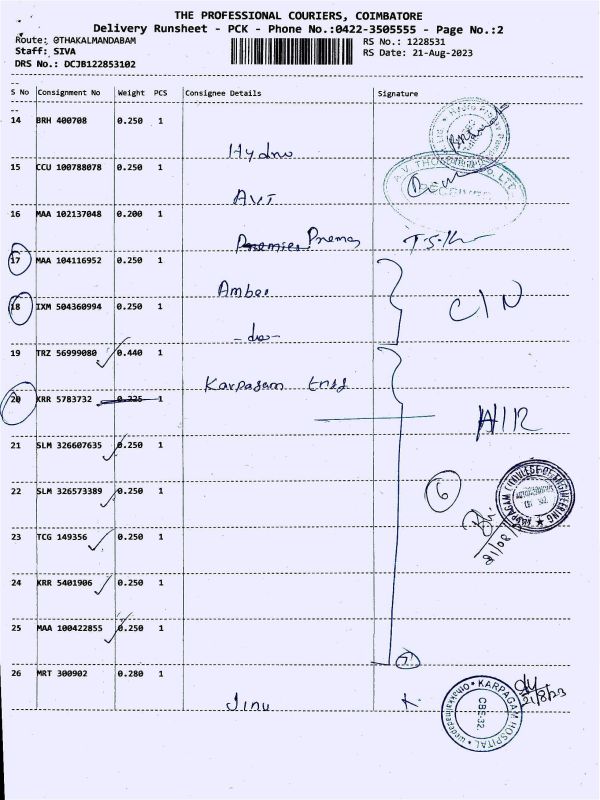 THE PROFESSIONAL COURIERS, COIMBATORE
Delivery Runsheet - PCK - Phone No.:0422-3505555 - Page No.:2
Route: @THAKALMANDABAM
RS No.: 1228531
Staff: SIVA
RS Date: 21-Aug-2023
DRS No.: DCJB122853102
S No Consignment No Weight PCS Consignee Details Signature
14 BRH 400708 0.250 1
Hydro
15 CCU 100788078 0.250 1
AVT
16 MAA 102137048 0.200 1
Prema
17 MAA 104116952 0.250 1
Amber
18 IXM 504360994 0.250 1
C/N
-do-
19 TRZ 56999080 0.440 1
Karpagam
20 KRR 5783732 0.225 1
21 SLM 326607635 0.250 1
22 SLM 326573389 0.250 1
6
KARPAGAM COLLEGE OF ENGINEERING
23 TCG 149356 0.250 1
24 KRR 5401906 0.250 1
25 MAA 100422855 0.250 1
7
26 MRT 300902 0.280 1
Jinu
21/8/23
KARPAGAM HOSPITAL
CBE-32.